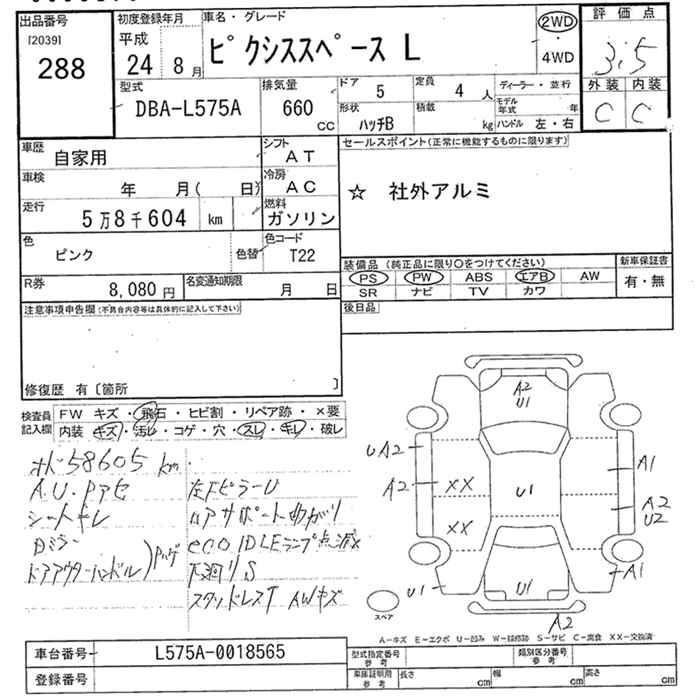 出品番号
[2039]
288
初度登録年月
平成
24 8月
車名・グレード
ピクシススペース L
2WD
・
4WD
評価点
3.5
外装 内装
C C
型式
DBA-L575A
排気量
660
CC
ドア
5
定員
4 人
形状
ハッチB
積載
kg
ディーラー・並行
モデル年式 年
ハンドル 左・右
車歴
自家用
シフト
AT
車検
年 月( 日)
冷房
AC
走行
5万8千604 km
燃料
ガソリン
色
ピンク
色替
色コード
T22
R券
8,080 円
名変通知期限
月 日
セールスポイント(正常に機能するものに限ります)
☆ 社外アルミ
装備品 (純正品に限り○をつけてください)
PS PW ABS エアB AW
SR ナビ TV カワ
新車保証書
有・無
後日品
注意事項申告欄(不具合内容等は具体的に記入して下さい)
修復歴 有〔箇所 〕
検査員
記入欄
FW キズ・飛石・ヒビ割・リペア跡・×要
内装 キズ・汚レ・コゲ・穴・スレ・キレ・破レ
58605 km
シートキレ
ドアアウターハンドル
左Fピラー U
コアサポートまがり
eco IDLEランプ点滅
スタッドレスT AWキズ
A2
U1
UA2
A2
XX
XX
U1
A1
A2
U2
A1
U1
U1
A2
スペア
A－キズ E－エクボ U－凹み W－補修跡 S－サビ C－腐食 XX－交換済
車台番号 L575A-0018565
登録番号
型式指定番号
参考
類別区分番号
参考
車庫証明用
参考
長さ cm 幅 cm 高さ cm